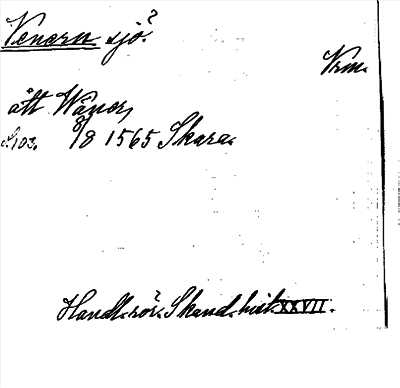 Venern sjö?
Vrm.
att Wäner,
S. 103. 18/8 1565 Skara.
Handl. rör. Skand. hist. XXVII.